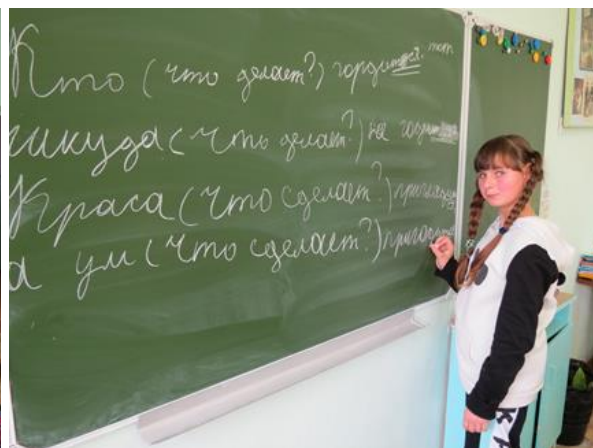 Кто (что делает?) гордится, тот
никуда (что делает?) не годится
Краса (что сделает?) приглядится
а ум (что сделает?) пригодит